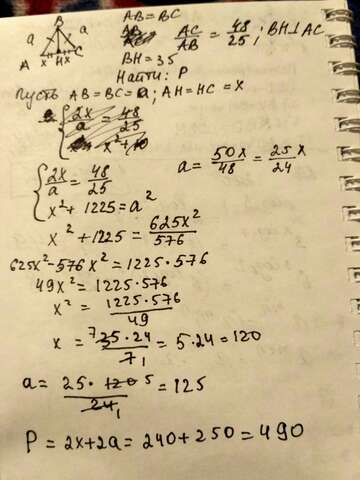 B
a a
A x H x C
AB = BC
AC/AB = 48/25 ; BH ⊥ AC
BH = 35
Найти: P
Пусть AB = BC = a; AH = HC = x
2x/a = 48/25
x² + 
{ 2x/a = 48/25
a = 50x/48 = 25x/24
x² + 1225 = a²
x² + 1225 = 625x²/576
625x² - 576x² = 1225 · 576
49x² = 1225 · 576
x² = 1225 · 576/49
x = 35 · 24/7 = 5 · 24 = 120
a = 25 · 120/24 = 125
P = 2x + 2a = 240 + 250 = 490